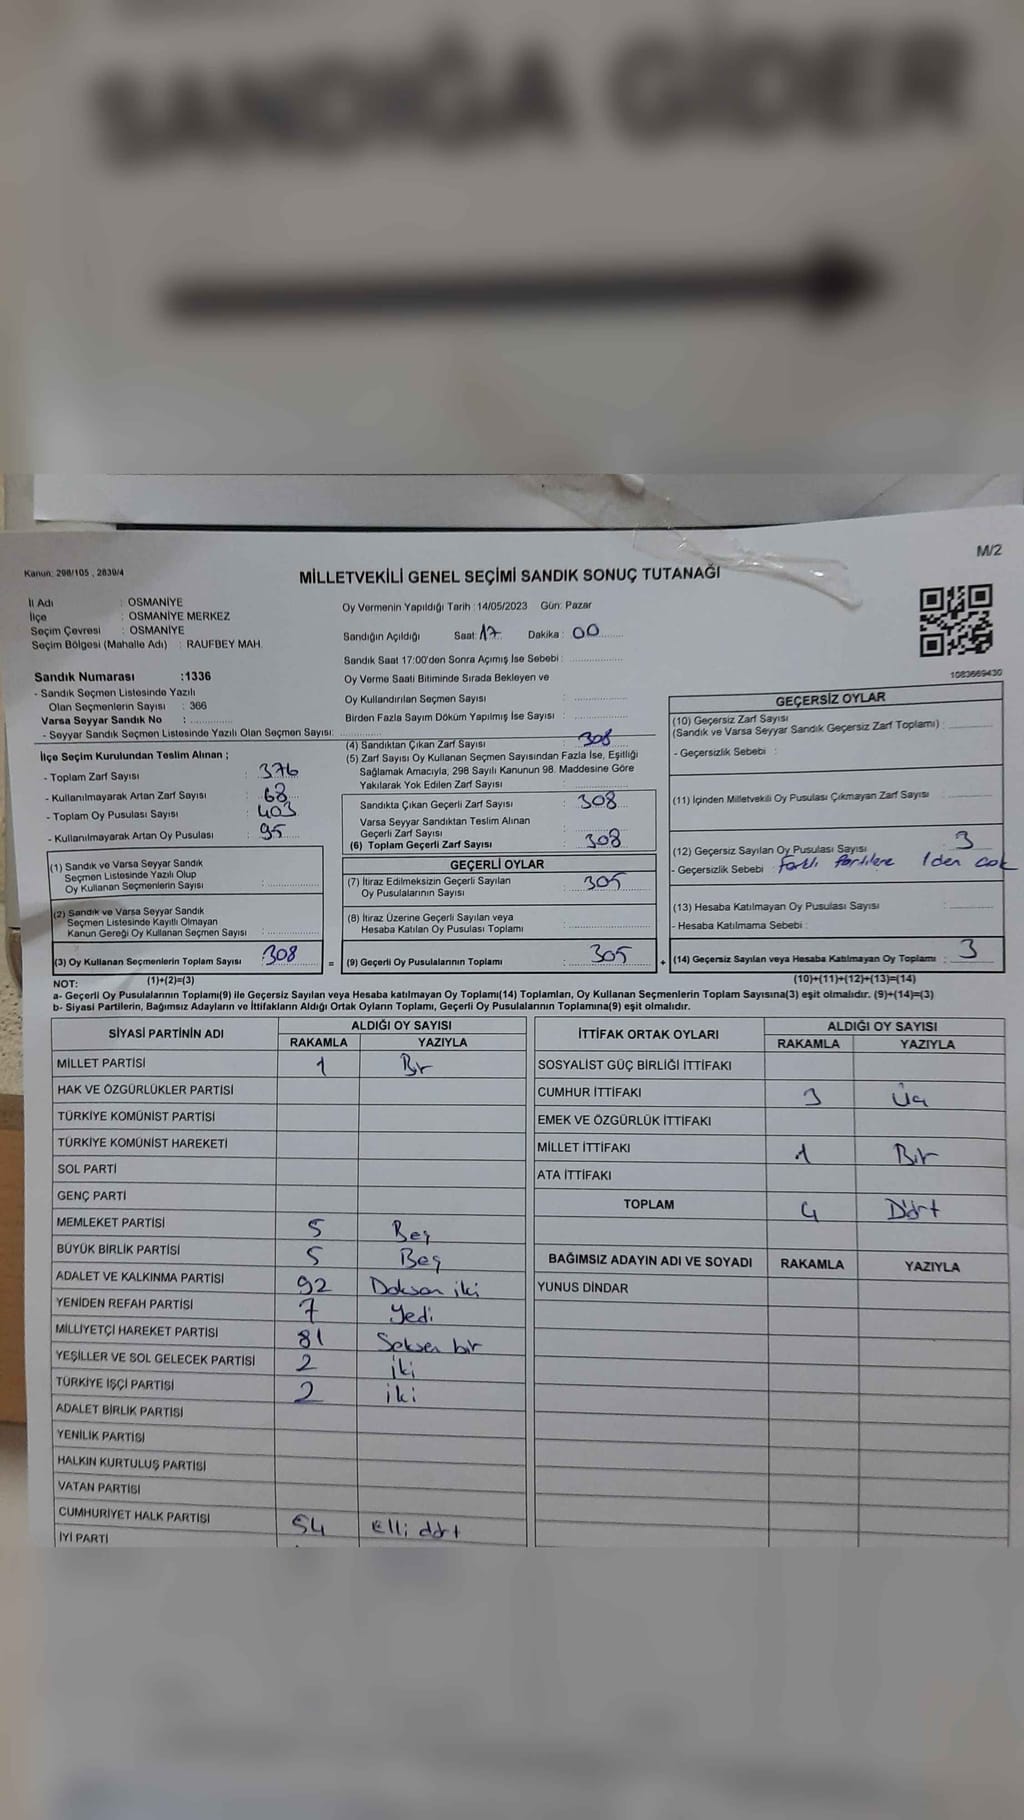 SANDIĞA GİDER
M/2
Kanun: 298/105 , 2839/4
MİLLETVEKİLİ GENEL SEÇİMİ SANDIK SONUÇ TUTANAĞI
İl Adı : OSMANİYE
İlçe : OSMANİYE MERKEZ
Seçim Çevresi : OSMANİYE
Seçim Bölgesi (Mahalle Adı) : RAUFBEY MAH.
Oy Vermenin Yapıldığı Tarih :14/05/2023 Gün: Pazar
Sandığın Açıldığı Saat: 17 Dakika : 00
Sandık Saat 17:00'den Sonra Açımış İse Sebebi :
Oy Verme Saati Bitiminde Sırada Bekleyen ve
Oy Kullandırılan Seçmen Sayısı :
Birden Fazla Sayım Döküm Yapılmış İse Sayısı :
1083669430
Sandık Numarası :1336
- Sandık Seçmen Listesinde Yazılı
Olan Seçmenlerin Sayısı : 366
Varsa Seyyar Sandık No :
- Seyyar Sandık Seçmen Listesinde Yazılı Olan Seçmen Sayısı:
İlçe Seçim Kurulundan Teslim Alınan ;
- Toplam Zarf Sayısı : 376
- Kullanılmayarak Artan Zarf Sayısı : 68
- Toplam Oy Pusulası Sayısı : 403
- Kullanılmayarak Artan Oy Pusulası : 95
(1) Sandık ve Varsa Seyyar Sandık
Seçmen Listesinde Yazılı Olup
Oy Kullanan Seçmenlerin Sayısı :
(2) Sandık ve Varsa Seyyar Sandık
Seçmen Listesinde Kayıtlı Olmayan
Kanun Gereği Oy Kullanan Seçmen Sayısı :
(3) Oy Kullanan Seçmenlerin Toplam Sayısı : 308
(1)+(2)=(3)
(4) Sandıktan Çıkan Zarf Sayısı : 308
(5) Zarf Sayısı Oy Kullanan Seçmen Sayısından Fazla İse, Eşitliği
Sağlamak Amacıyla, 298 Sayılı Kanunun 98. Maddesine Göre
Yakılarak Yok Edilen Zarf Sayısı :
Sandıkta Çıkan Geçerli Zarf Sayısı : 308
Varsa Seyyar Sandıktan Teslim Alınan
Geçerli Zarf Sayısı :
(6) Toplam Geçerli Zarf Sayısı : 308
GEÇERLİ OYLAR
(7) İtiraz Edilmeksizin Geçerli Sayılan
Oy Pusulalarının Sayısı : 305
(8) İtiraz Üzerine Geçerli Sayılan veya
Hesaba Katılan Oy Pusulası Toplamı :
= (9) Geçerli Oy Pusulalarının Toplamı : 305 +
GEÇERSİZ OYLAR
(10) Geçersiz Zarf Sayısı
(Sandık ve Varsa Seyyar Sandık Geçersiz Zarf Toplamı) :
- Geçersizlik Sebebi :
(11) İçinden Milletvekili Oy Pusulası Çıkmayan Zarf Sayısı :
(12) Geçersiz Sayılan Oy Pusulası Sayısı : 3
- Geçersizlik Sebebi : farklı Partilere 1 den çok
(13) Hesaba Katılmayan Oy Pusulası Sayısı :
- Hesaba Katılmama Sebebi :
(14) Geçersiz Sayılan veya Hesaba Katılmayan Oy Toplamı : 3
(10)+(11)+(12)+(13)=(14)
NOT:
a- Geçerli Oy Pusulalarının Toplamı(9) ile Geçersiz Sayılan veya Hesaba katılmayan Oy Toplamı(14) Toplamları, Oy Kullanan Seçmenlerin Toplam Sayısına(3) eşit olmalıdır. (9)+(14)=(3)
b- Siyasi Partilerin, Bağımsız Adayların ve İttifakların Aldığı Ortak Oyların Toplamı, Geçerli Oy Pusulalarının Toplamına(9) eşit olmalıdır.
SİYASİ PARTİNİN ADI ALDIĞI OY SAYISI
RAKAMLA YAZIYLA
MİLLET PARTİSİ 1 Bir
HAK VE ÖZGÜRLÜKLER PARTİSİ
TÜRKİYE KOMÜNİST PARTİSİ
TÜRKİYE KOMÜNİST HAREKETİ
SOL PARTİ
GENÇ PARTİ
MEMLEKET PARTİSİ 5 Beş
BÜYÜK BİRLİK PARTİSİ 5 Beş
ADALET VE KALKINMA PARTİSİ 92 Doksan iki
YENİDEN REFAH PARTİSİ 7 Yedi
MİLLİYETÇİ HAREKET PARTİSİ 81 Seksen bir
YEŞİLLER VE SOL GELECEK PARTİSİ 2 iki
TÜRKİYE İŞÇİ PARTİSİ 2 iki
ADALET BİRLİK PARTİSİ
YENİLİK PARTİSİ
HALKIN KURTULUŞ PARTİSİ
VATAN PARTİSİ
CUMHURİYET HALK PARTİSİ 54 Elli dört
İYİ PARTİ
İTTİFAK ORTAK OYLARI ALDIĞI OY SAYISI
RAKAMLA YAZIYLA
SOSYALİST GÜÇ BİRLİĞİ İTTİFAKI
CUMHUR İTTİFAKI 3 Üç
EMEK VE ÖZGÜRLÜK İTTİFAKI
MİLLET İTTİFAKI 1 Bir
ATA İTTİFAKI
TOPLAM 4 Dört
BAĞIMSIZ ADAYIN ADI VE SOYADI RAKAMLA YAZIYLA
YUNUS DİNDAR